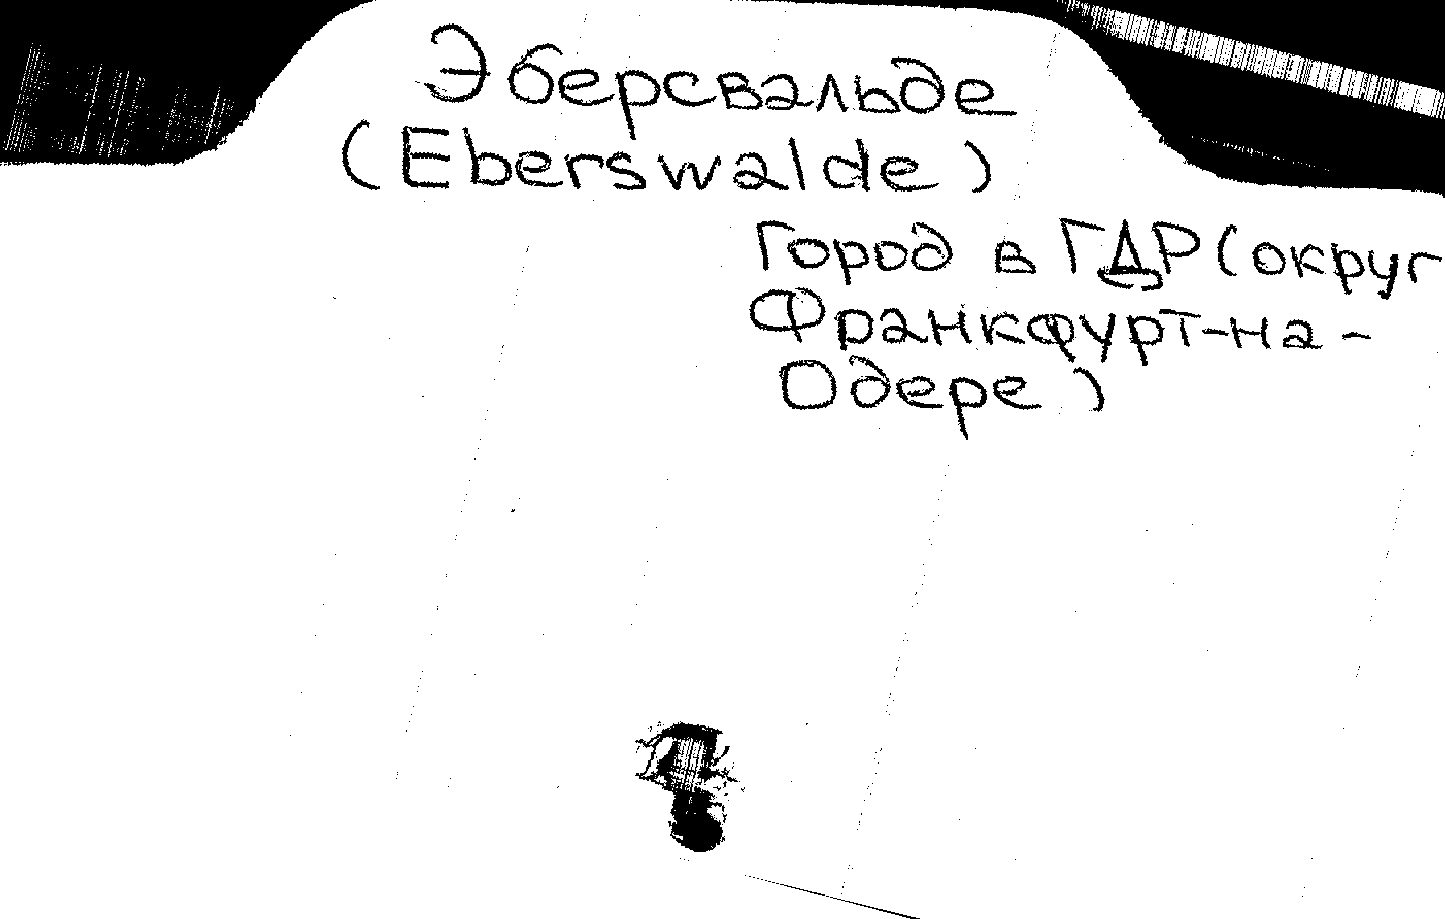 Эберсвальде
(Eberswalde)
Город в ГДР (округ
Франкфурт-на-
Одере)